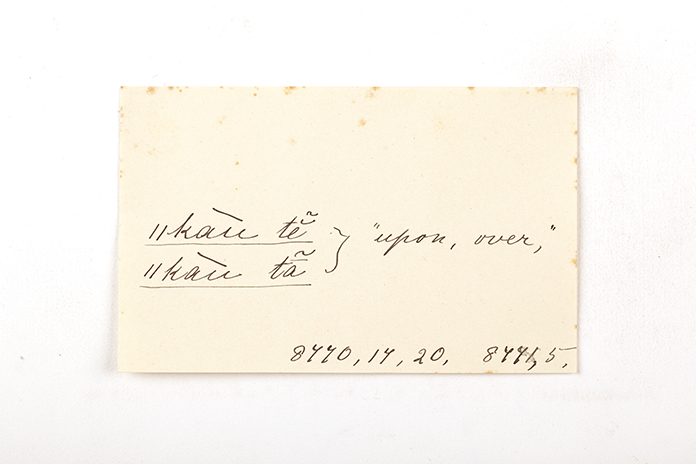 ǁkàu tẽ̆ } "upon, over,"
ǁkàu tã̆
8770, 17, 20. 8771, 5.